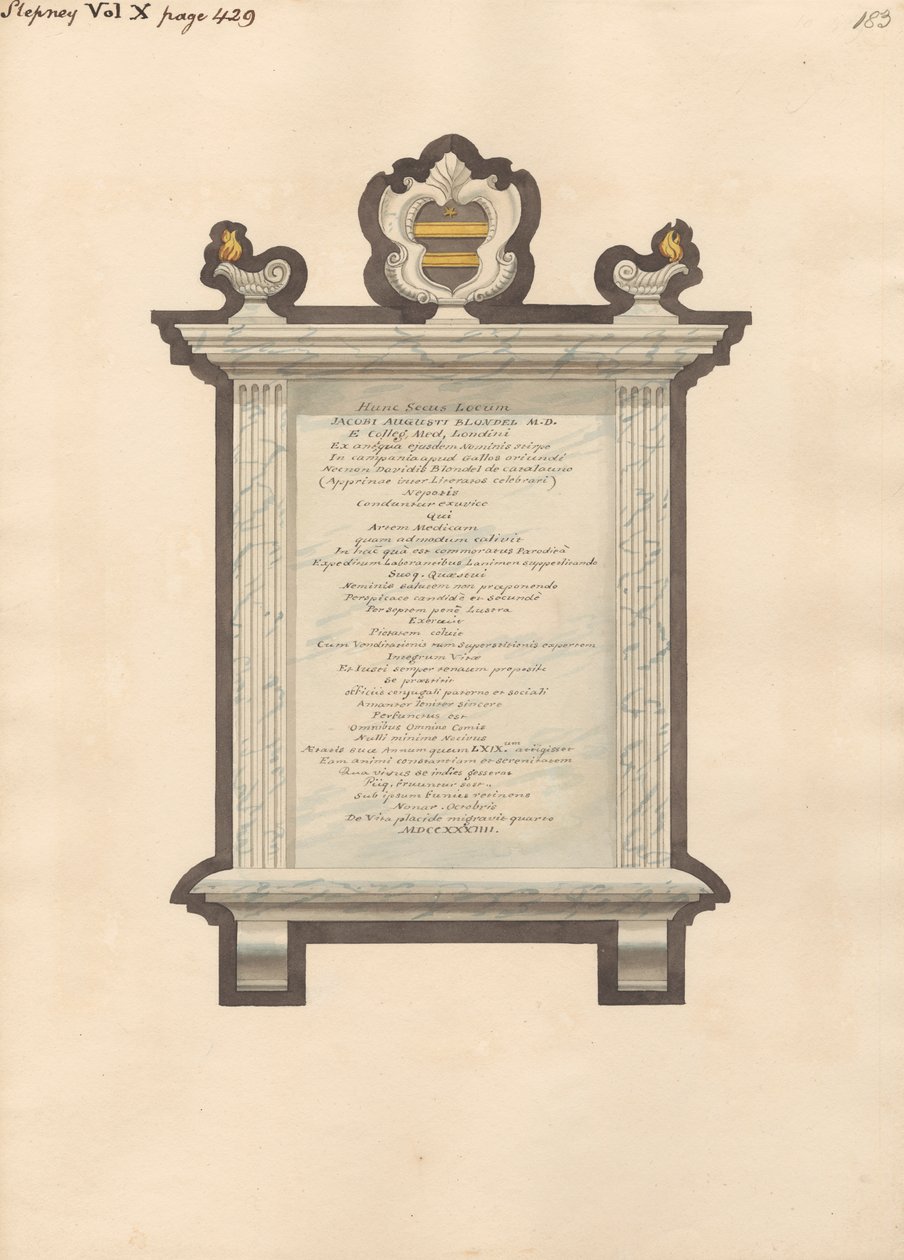 Stepney Vol X page 429
183
Hunc Secus Locum
JACOBI AUGUSTI BLONDEL M.D.
E Colleg, Med, Londini
Ex antiqua ejusdem Nominis stirpe
In campania apud Gallos oriundi
Necnon Davidis Blondel de catalauno
(Apprinae inter Literatos celebrari)
Nepotis
Conduntur exuvice
Qui
Artem Medicam
quam admodum calivit
In hac quâ est commoratus Parodicâ
Expeditum Laborantibus Lanimen suppeditando
Suoq. Quæstui
Neminis salutem non præponendo
Perspicace candidè et secundè
Per septem penè Lustra
Exercuit
Pietatem coluit
Cum Venditationis tum superstitionis expertem
Integrum Vitæ
Et Iusti semper tenacem propositi
Se præstitit
officiis conjugali paterno et sociali
Amanter leniter sincere
Perfunctus est
Omnibus Omnino Comis
Nulli minime Nocivus
Ætatis suæ Annum quum LXIX.um attigisset
Eam animi constantiam et serenitatem
Qua vivus se indies gesserat
Piiq. fruuntur
Sub ipsum funus retinens
Nonar. Octobris
De Vita placide migravit quarto
M.DCCXXXIIII.